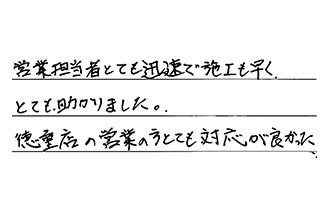 営業担当者とても迅速で施工も早く、
とても助かりました。
徳重店の営業の方とても対応が良かった